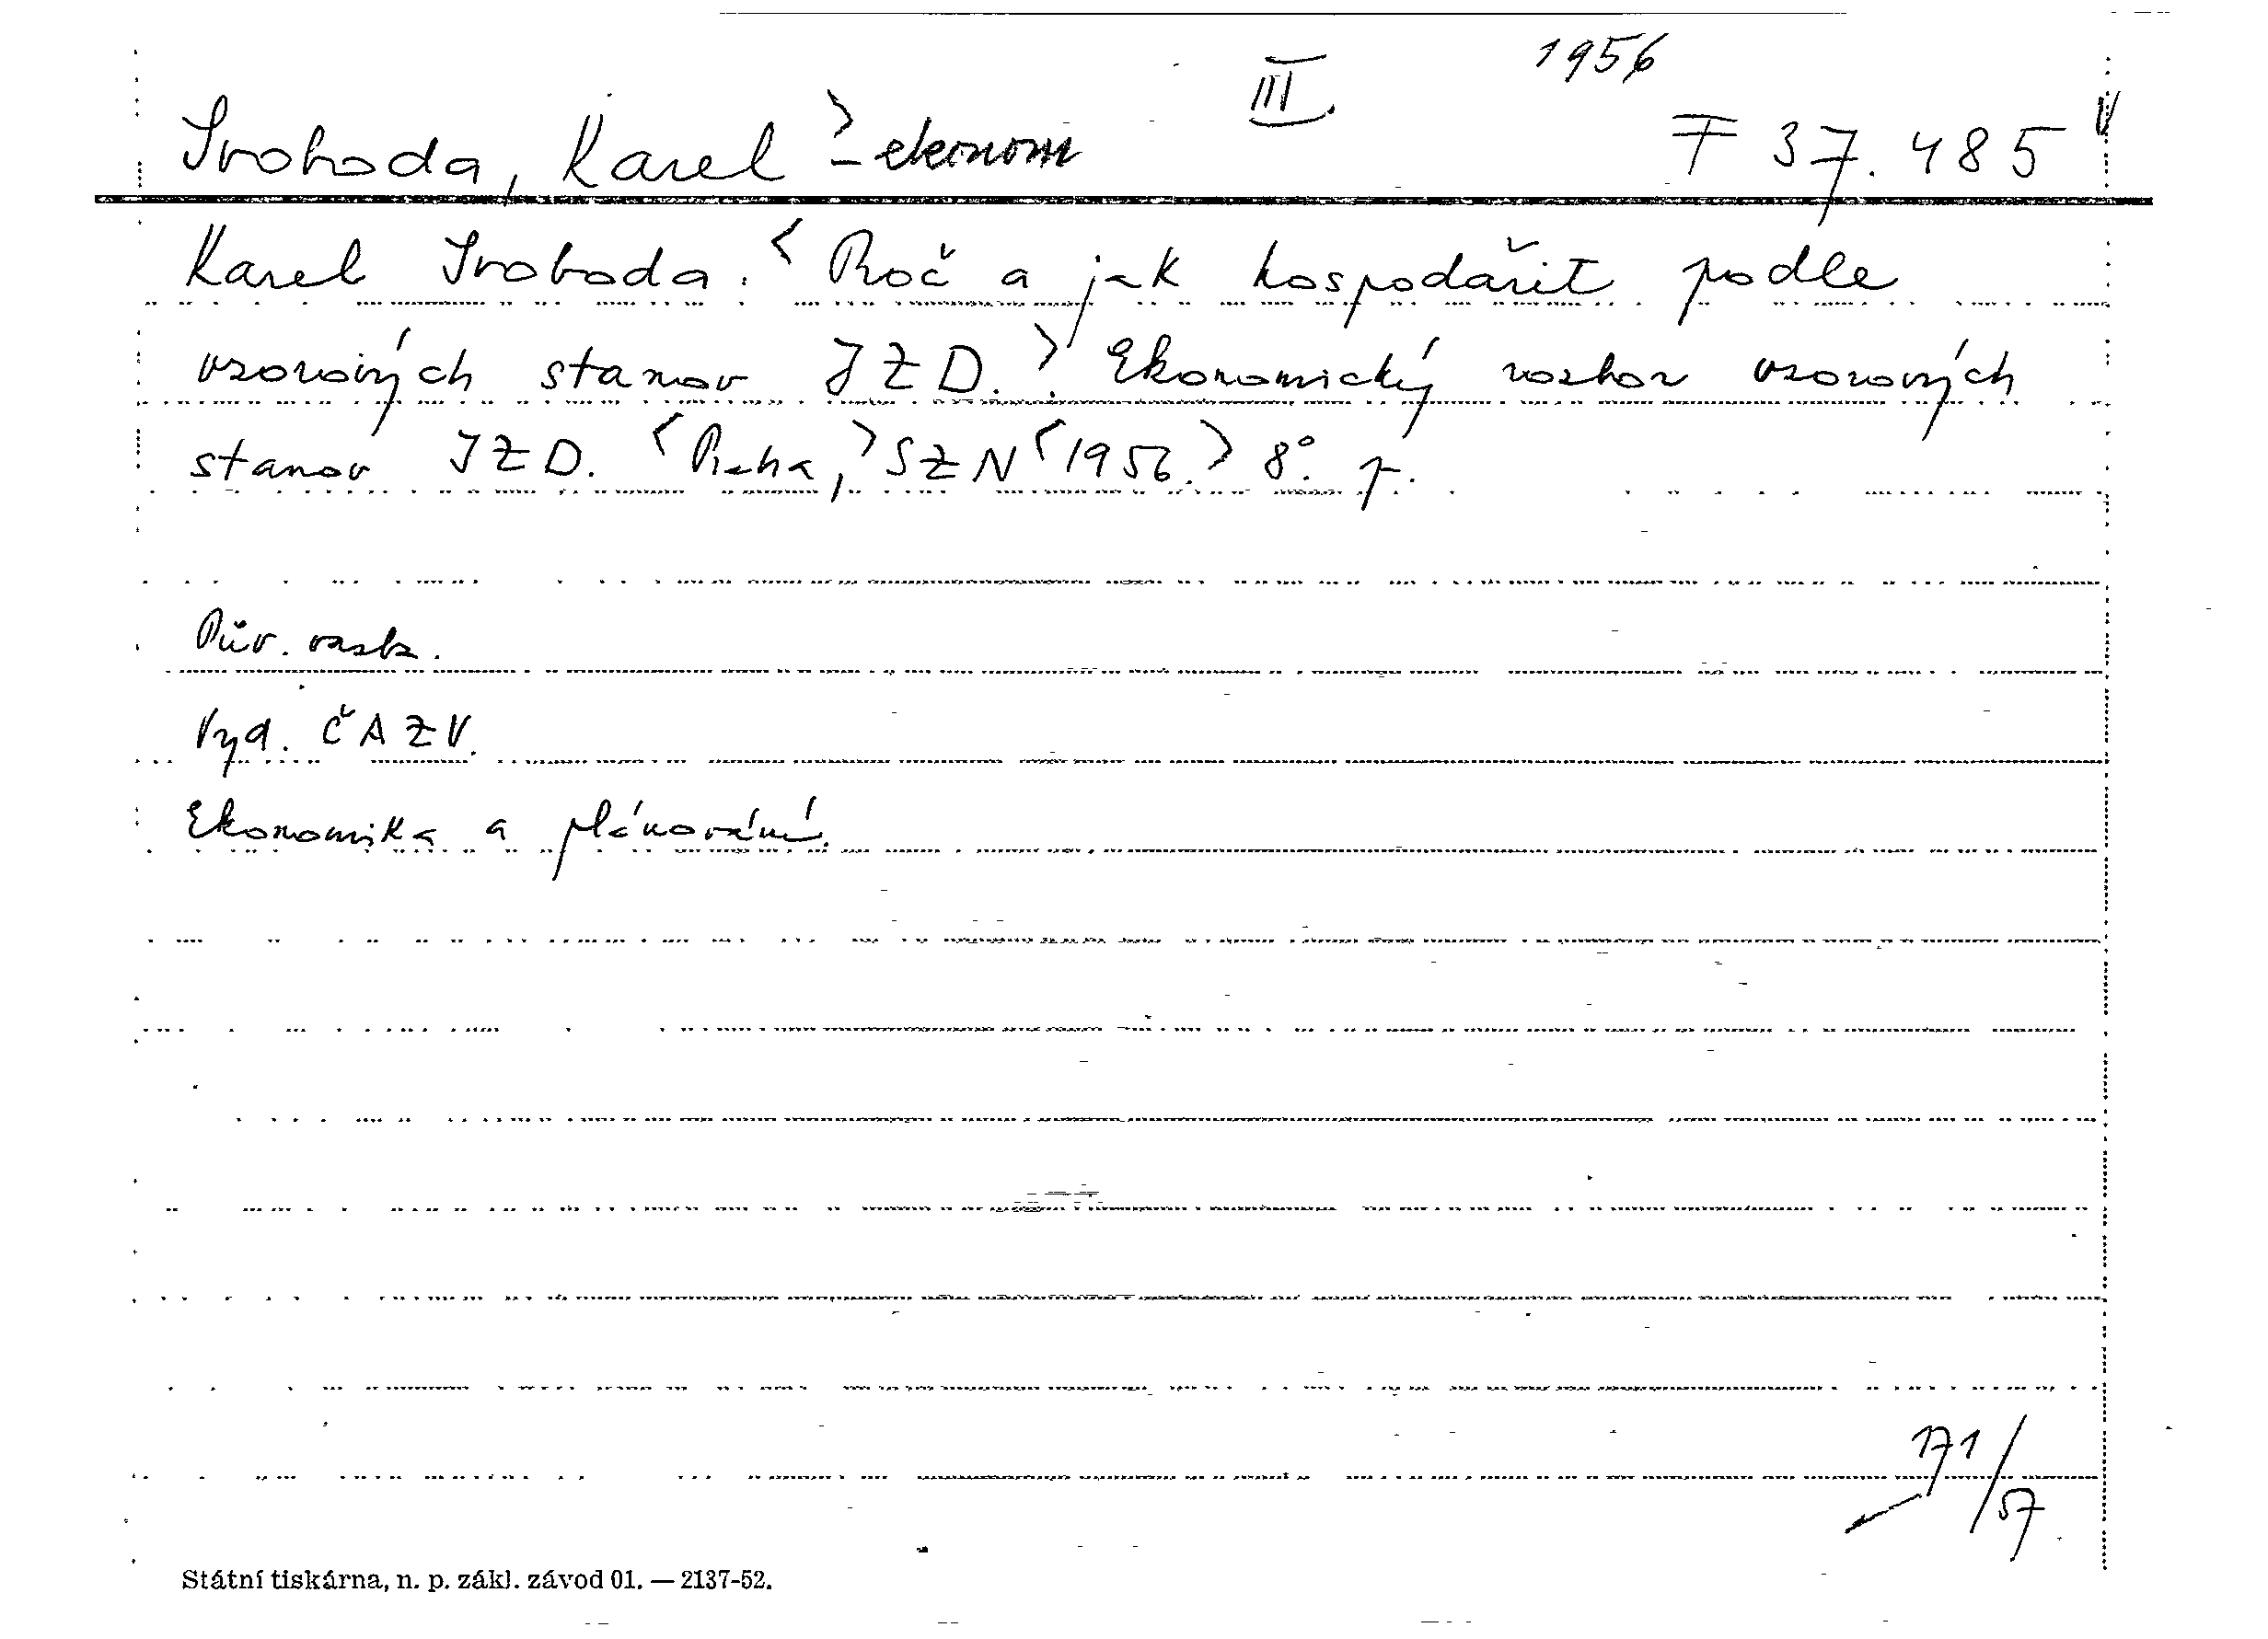 1956
III.
Svoboda, Karel > - ekonom
F 37.485
Karel Svoboda. < Proč a jak hospodařit podle
vzorových stanov JZD. > Ekonomický rozbor vzorových
stanov JZD. < Praha, > SZN < 1956. > 8°. p.
Pův.
Vyd. ČAZV.
Ekonomika a plánování.
171/57
Státní tiskárna, n. p. zákl. závod 01. — 2137-52.